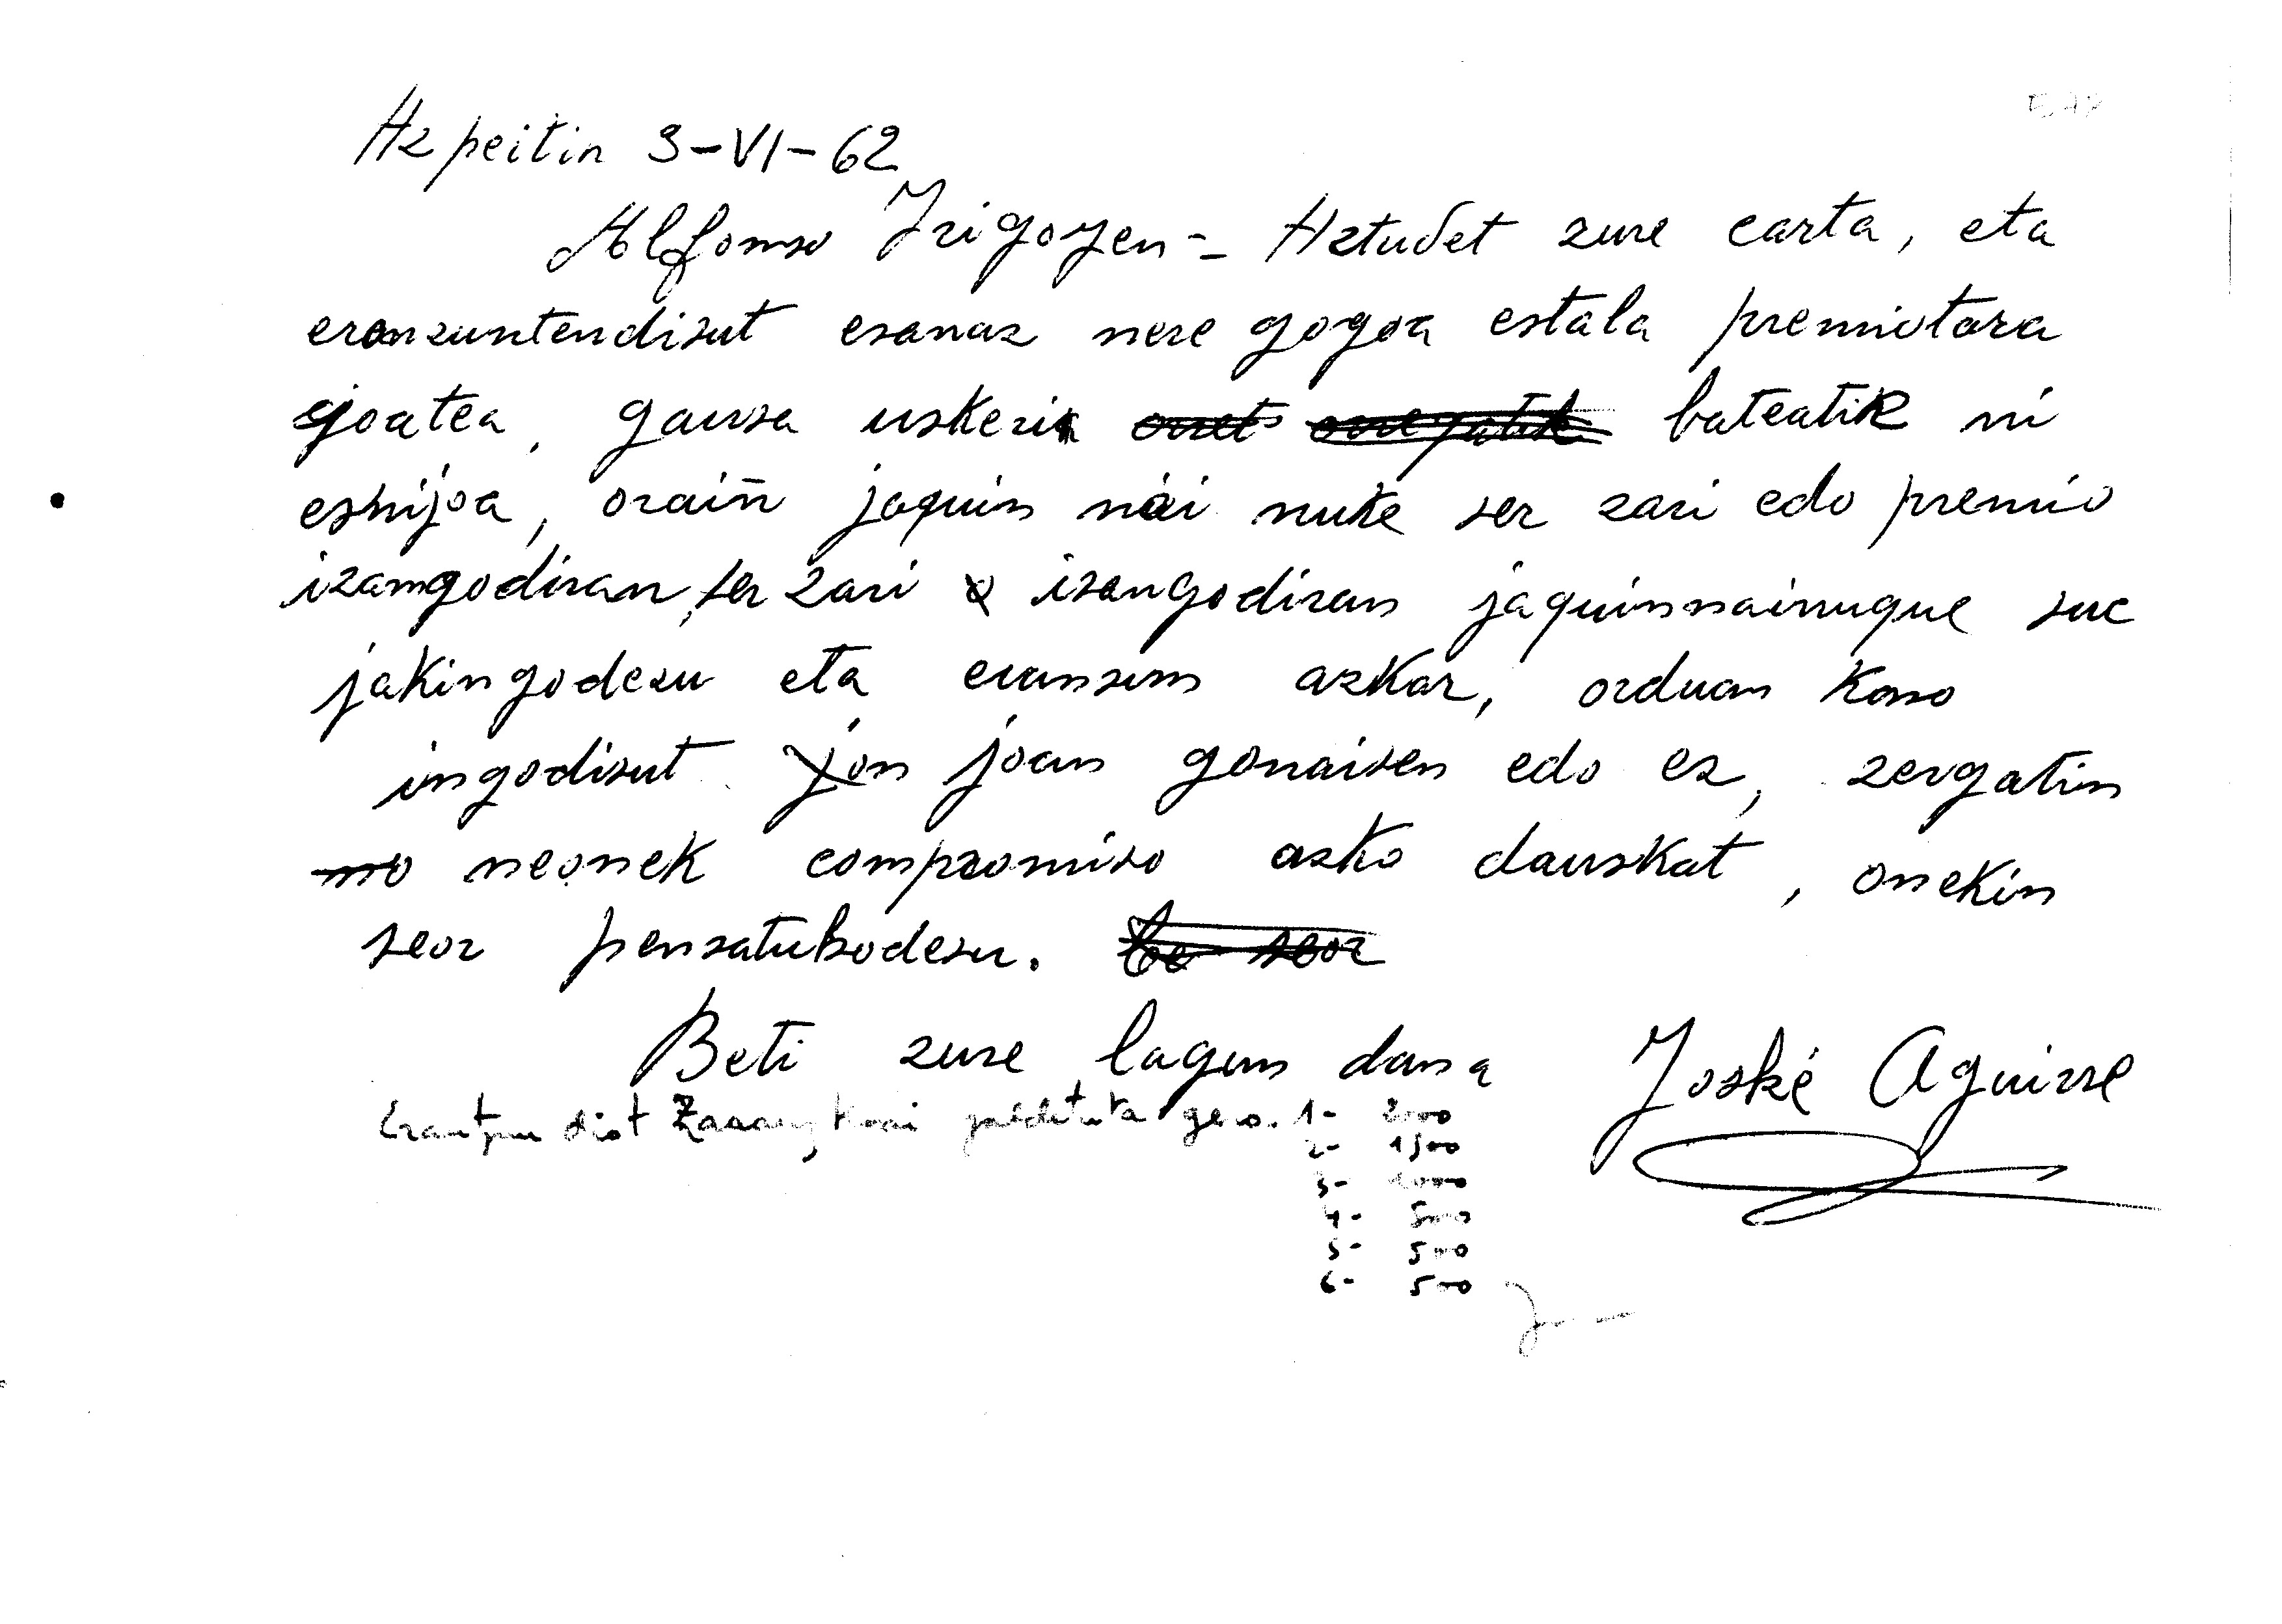 Azpeitin 3-VI-62
Alfonso Irigoyen = Aztudet zure carta, eta
eronzuntendizut esanaz nere gogoa estala premiotara
joatea, gausa uskerik bateatik ni
esnijoa, oraiñ jaquin nai nuke ser zari edo premio
izamgodiran, ser zari isangodiran jaquinnainuque sue
jakingodezu eta eransun azkar, orduan kaso
ingodisut joan gonaisen edo ez, zergatin
neonek compromiso asko dauskat, onekin
seor pensatukodesu.
Beti zure lagun dana Joské Aguirre
diot galdetuta gero. 1- 2000
2- 1500
3- 1000
4- 500
5- 500
6- 500